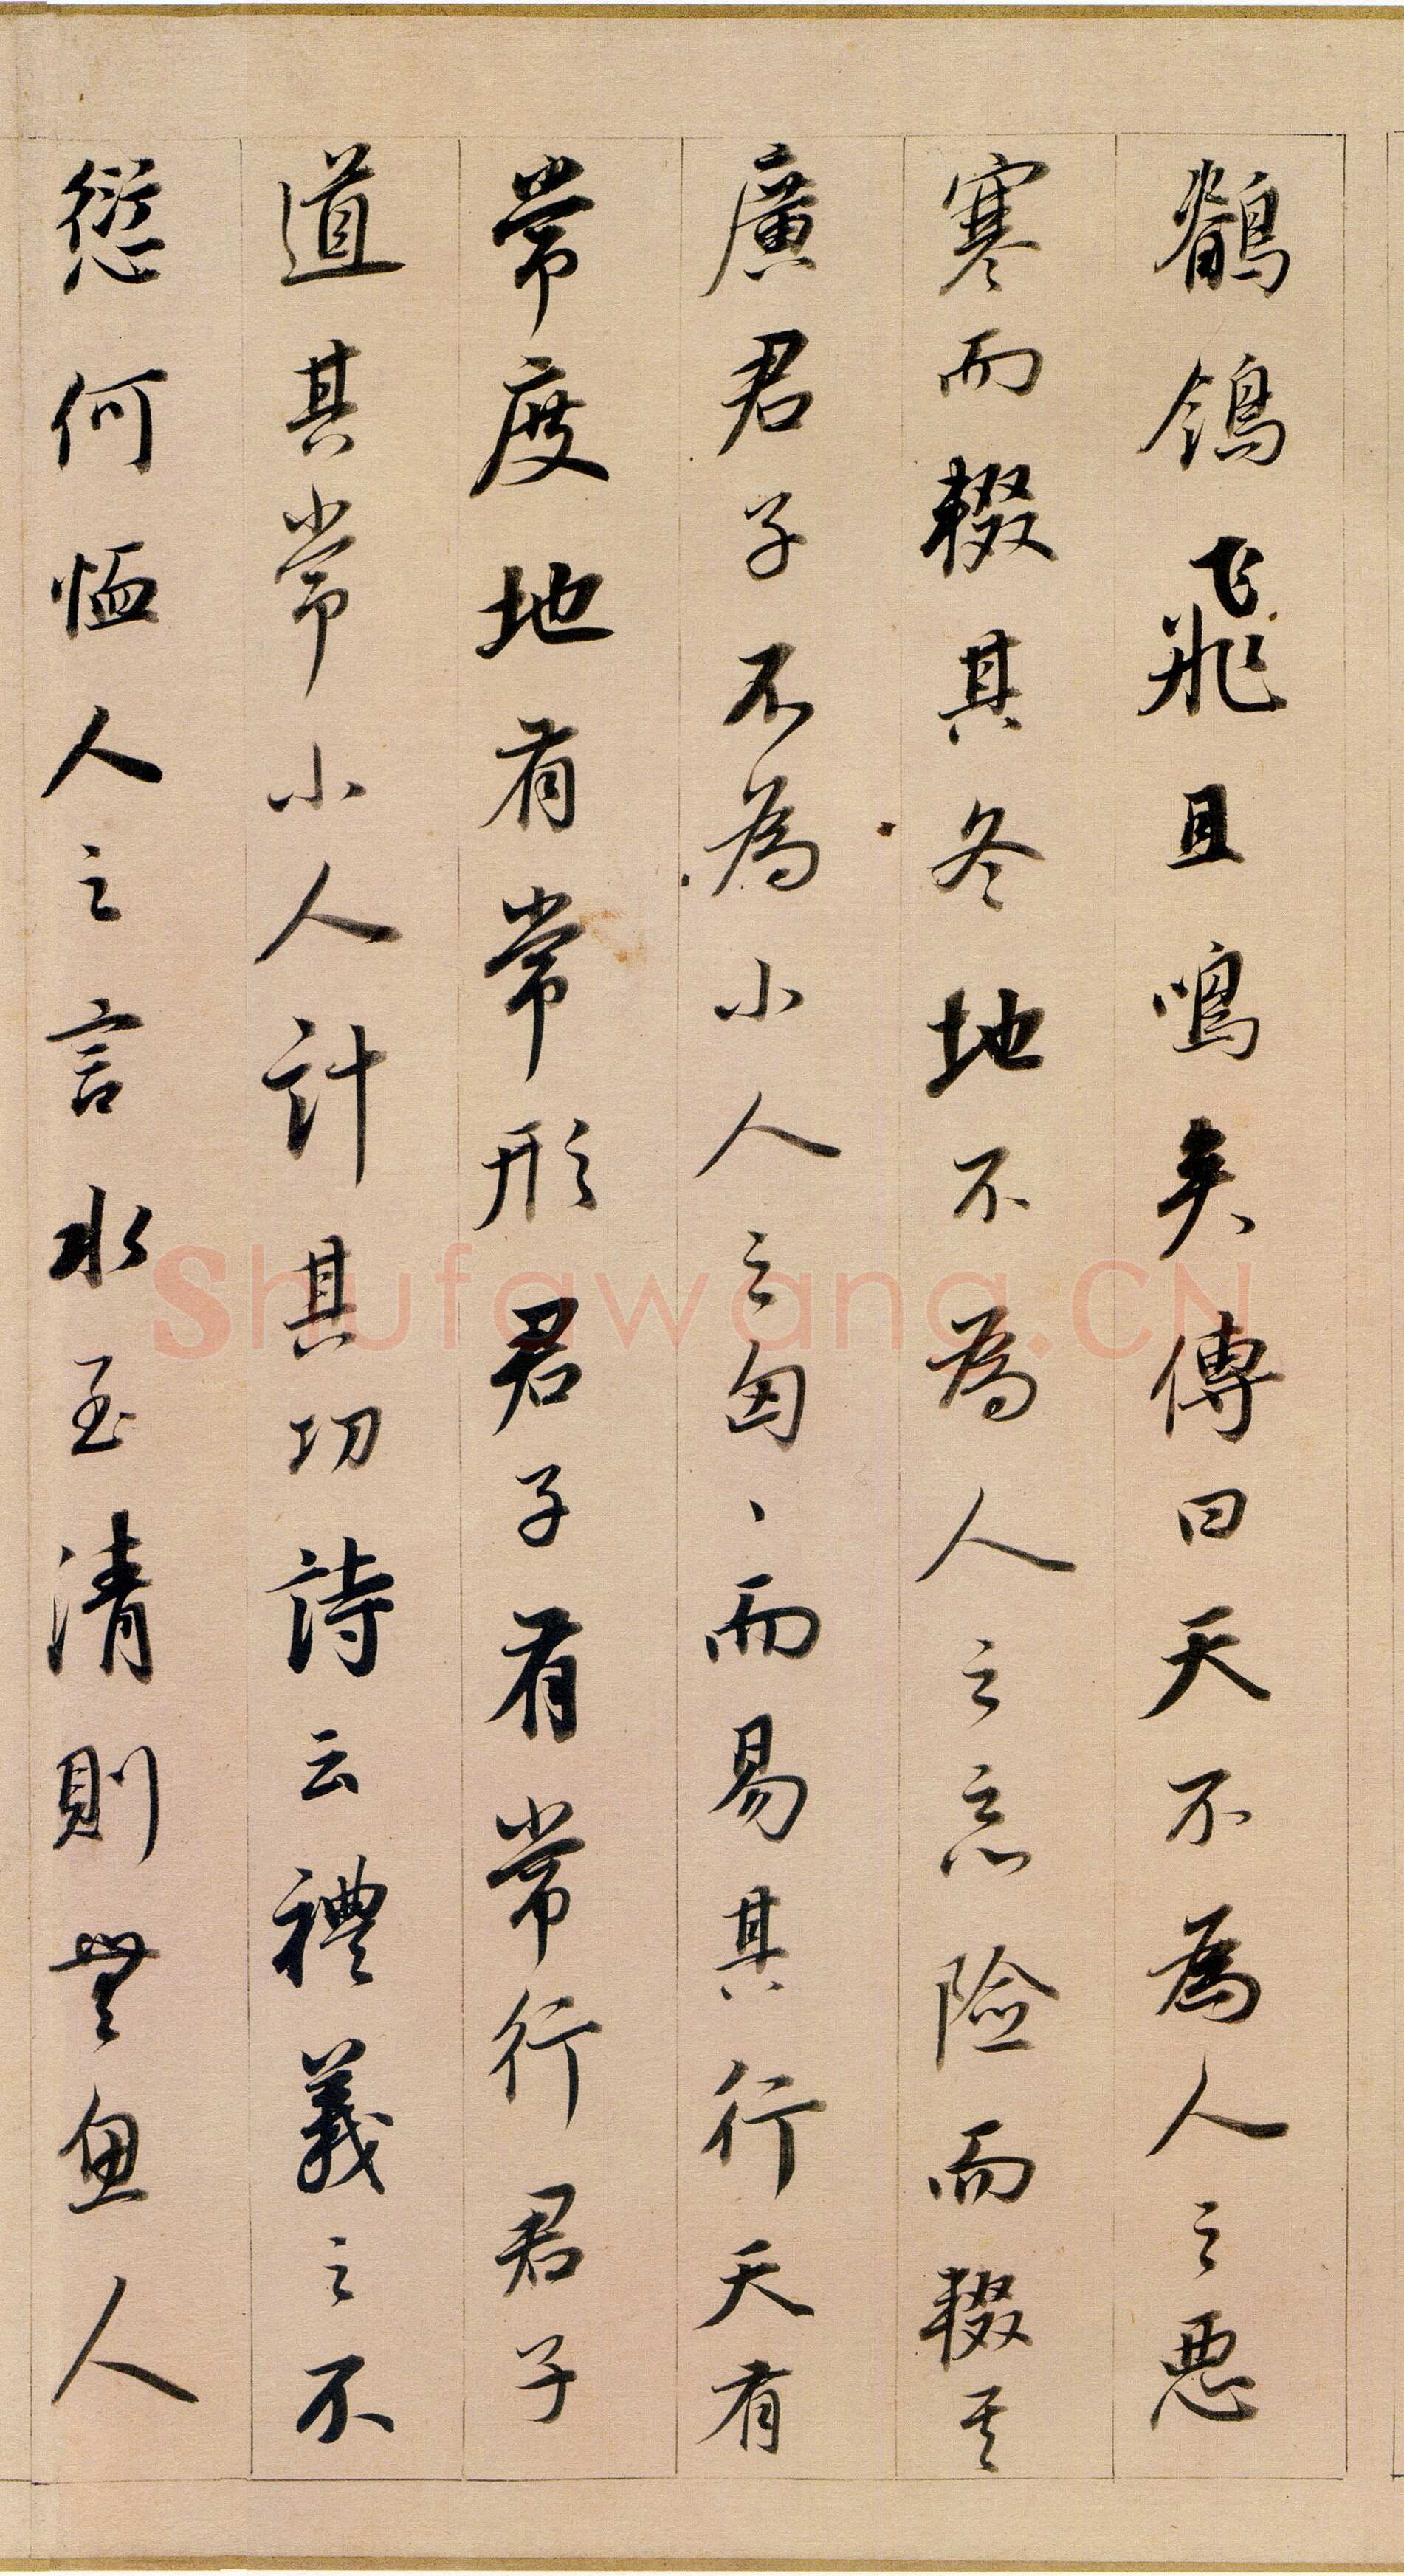 鶺鴒飛且鳴矣傳曰天不為人之惡
寒而輟其冬地不為人之惡險而輟其
廣君子不為小人之匈、而易其行天有
常度地有常形君子有常行君子
道其常小人計其功詩云禮義之不
愆何恤人之言水至清則無魚人
Shufawang.CN